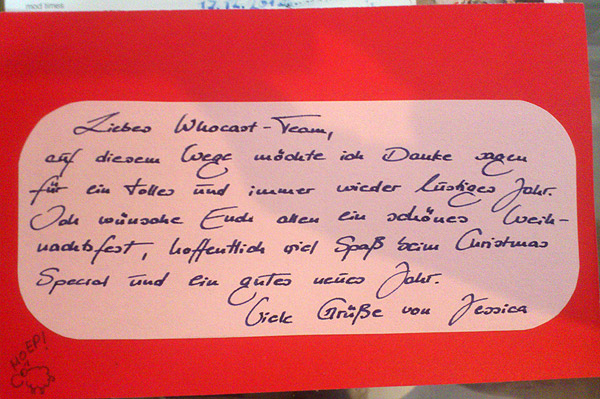 mod times
17.12.2012
Liebes Whocast-Team,
auf diesem Wege möchte ich Danke sagen
für ein tolles und immer wieder lustiges Jahr.
Ich wünsche Euch allen ein schönes Weih-
nachtsfest, hoffentlich viel Spaß beim Christmas
Special und ein gutes neues Jahr.
Viele Grüße von Jessica
MOEP!